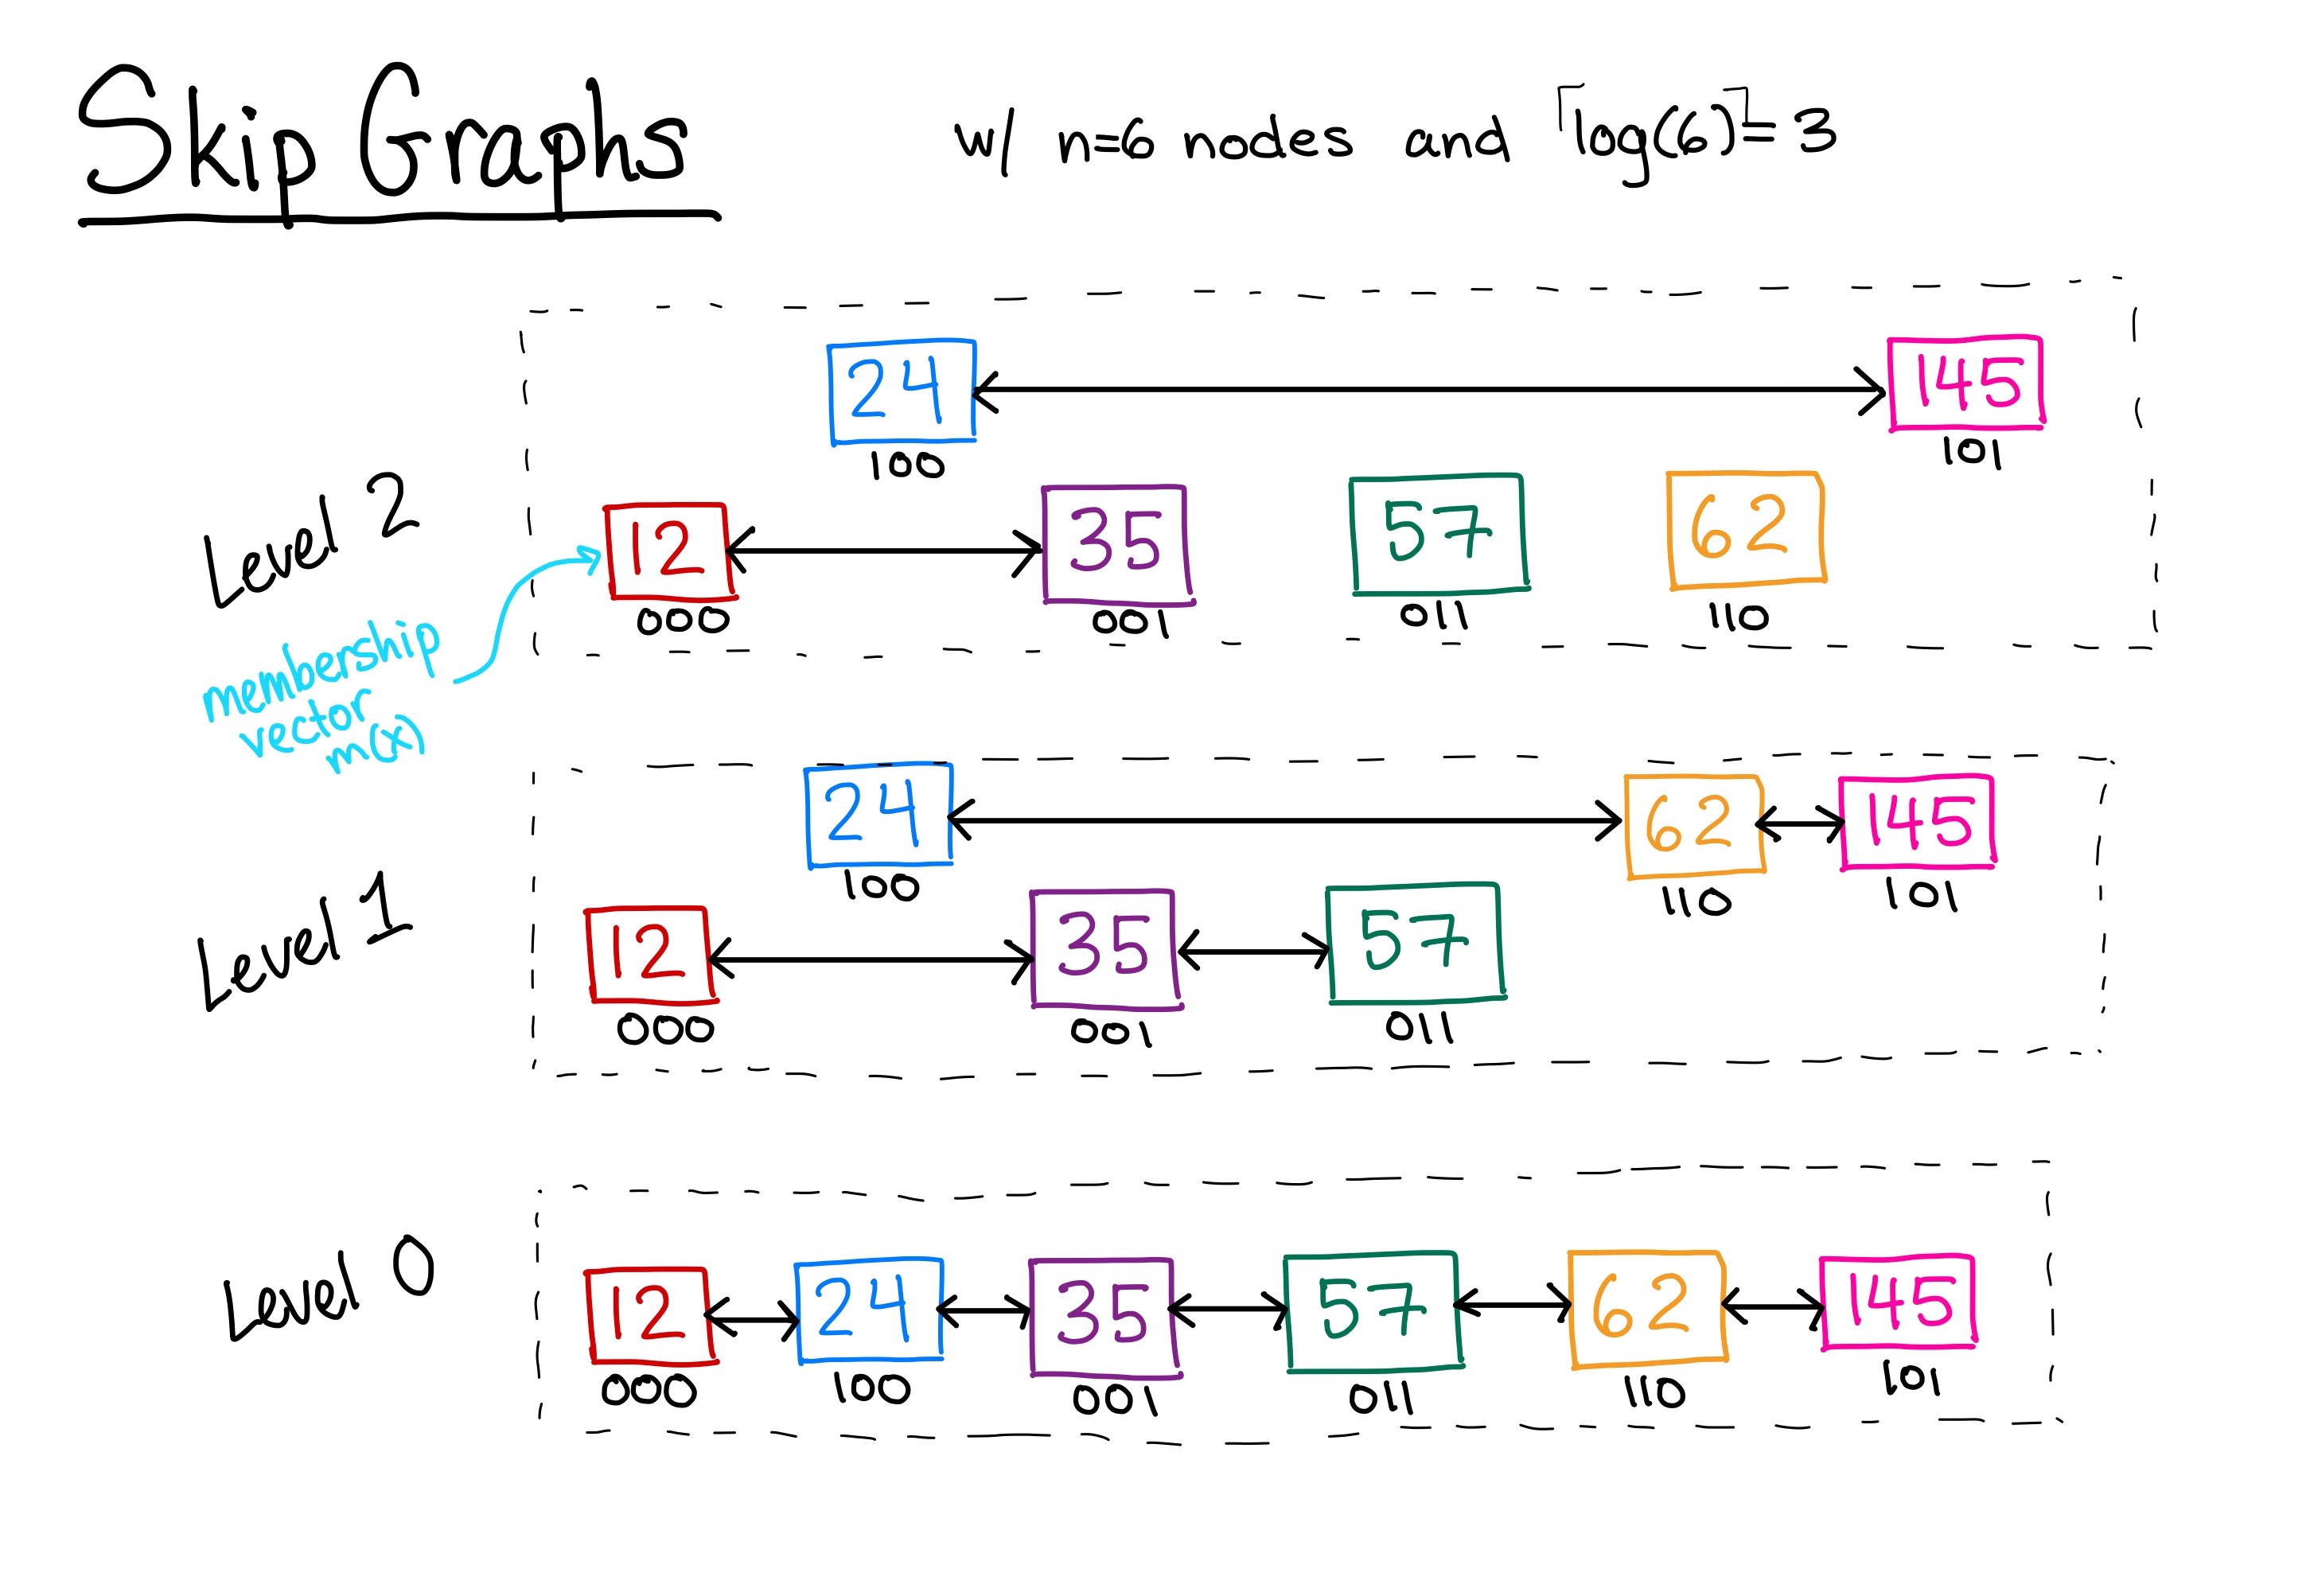 Skip Graphs
w/ n=6 nodes and ⌈log(6)⌉=3
Level 2
24
100
145
101
12
000
35
001
57
011
62
110
membership
vector
m(x)
Level 1
24
100
62
110
145
101
12
000
35
001
57
011
Level 0
12
000
24
100
35
001
57
011
62
110
145
101